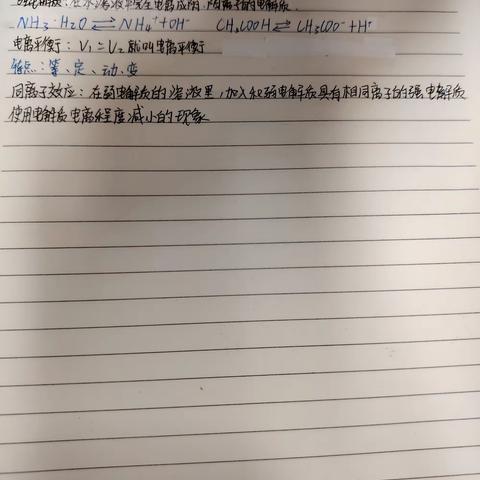 在水溶液中完全电离成阴、阳离子的电解质.
NH₃·H₂O ⇌ NH₄⁺+OH⁻ CH₃COOH ⇌ CH₃COO⁻+H⁺
电离平衡：V₁=V₂ 就叫电离平衡
特点：等、定、动、变
同离子效应：在弱电解质的溶液里，加入和弱电解质具有相同离子的强电解质
使用电解质电离程度减小的现象